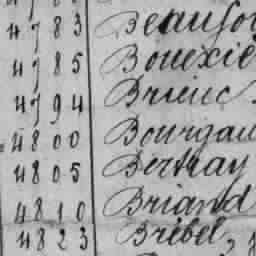 4783 Beaufo
4785 Bouexie
4794 Brieuc
4800 Bourgau
4805 Berthay
4810 Briand
4823 Brebel,